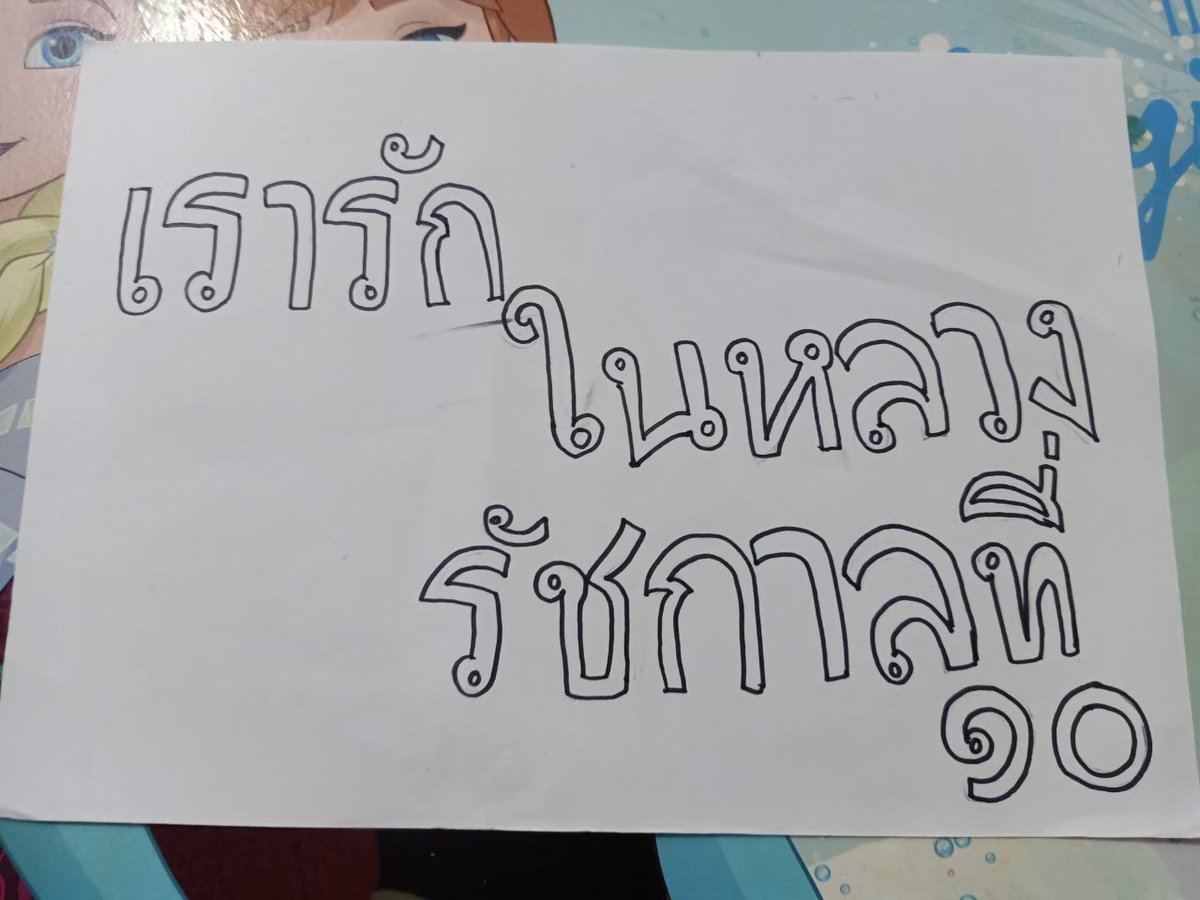 เรารัก
ในหลวง
รัชกาลที่
๑๐